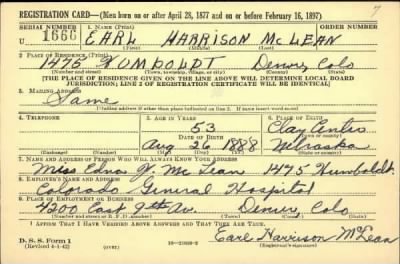 REGISTRATION CARD—(Men born on or after April 28, 1877 and on or before February 16, 1897)
SERIAL NUMBER
1. NAME (Print)
1666
EARL HARRISON McLEAN
(First) (Middle) (Last)
2. PLACE OF RESIDENCE (Print)
1475 HUMBOLDT Denver, Colo
(Number and street) (Town, township, village, or city) (County) (State)
[THE PLACE OF RESIDENCE GIVEN ON THE LINE ABOVE WILL DETERMINE LOCAL BOARD
JURISDICTION; LINE 2 OF REGISTRATION CERTIFICATE WILL BE IDENTICAL]
3. MAILING ADDRESS
Same
(Mailing address if other than place indicated on line 2. If same insert word same)
4. TELEPHONE
5. AGE IN YEARS
6. PLACE OF BIRTH
53
Clay Center
DATE OF BIRTH
Aug 26 1888
Nebraska
(Exchange) (Number)
(Mo.) (Day) (Yr.)
(State or country)
7. NAME AND ADDRESS OF PERSON WHO WILL ALWAYS KNOW YOUR ADDRESS
Miss Edna McLean 1475 Humboldt
8. EMPLOYER'S NAME AND ADDRESS
Colorado General Hospital
9. PLACE OF EMPLOYMENT OR BUSINESS
4200 East 9th Av. Denver Colo
(Number and street or R. F. D. number) (Town) (County) (State)
I AFFIRM THAT I HAVE VERIFIED ABOVE ANSWERS AND THAT THEY ARE TRUE.
D. S. S. Form 1
(Revised 4-1-42) (over)
Earl Harrison McLean
(Registrant's signature)